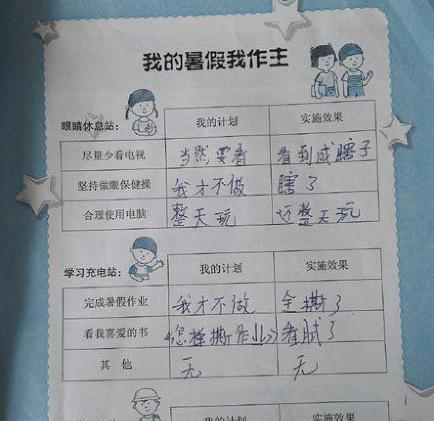 我的暑假我作主
眼睛休息站： 我的计划 实施效果
尽量少看电视 当然要看 看到成瞎子
坚持做眼保健操 我才不做 瞎了
合理使用电脑 整天玩 还整天玩
学习充电站： 我的计划 实施效果
完成暑假作业 我才不做 全撕了
看我喜爱的书 《怎样撕作业》 看腻了
其他 无 无
我的计划 实施效果